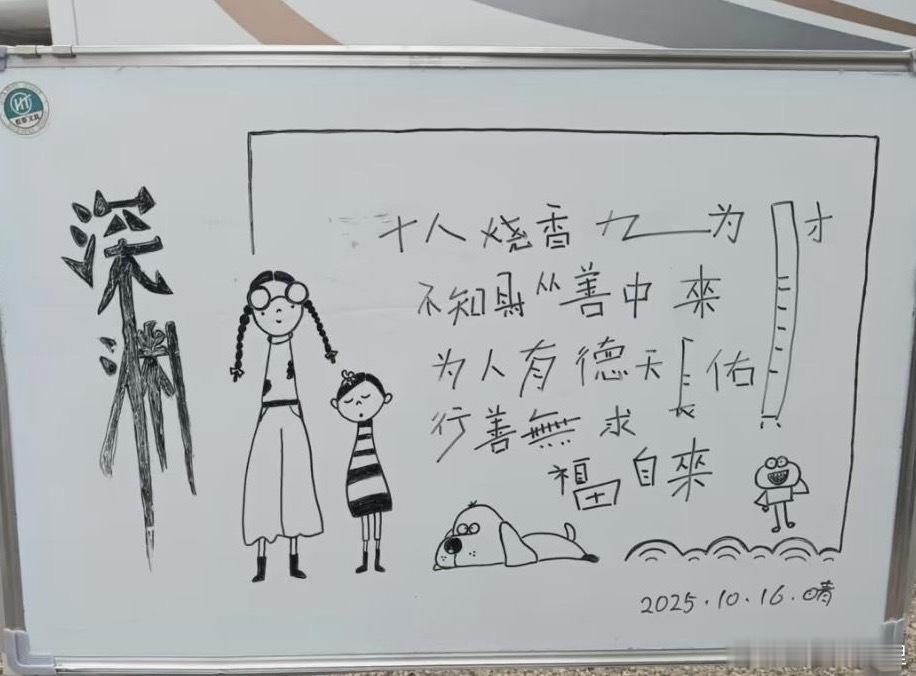 深渊
十人烧香九为財
不知財从善中來
为人有德天長佑
行善無求
福自來
2025.10.16.晴